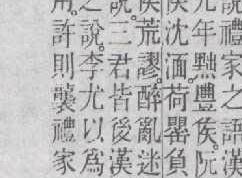 說禮家之說漢
元年黜豐侯阮
侯沈湎荷罌負
侯荒謬醉亂迷
說三君皆後漢
之說李尤以為
用許則襲禮家